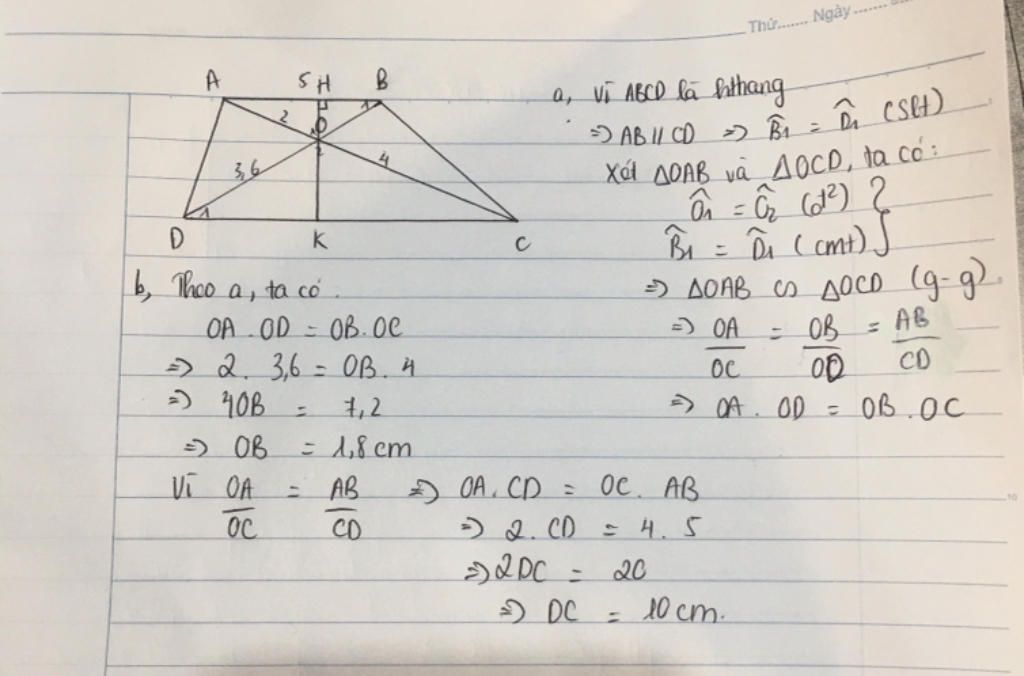 Thứ....... Ngày.......
A 5 H B
2 O 1
1
2
3,6 4
1
D K C
a, Vì ABCD là hthang
⇒ AB // CD ⇒ B̂1 = D̂1 (slt)
Xét ΔOAB và ΔOCD, ta có:
Ô1 = Ô2 (đ²) }
B̂1 = D̂1 (cmt)
⇒ ΔOAB ∽ ΔOCD (g-g).
⇒ OA/OC = OB/OD = AB/CD
⇒ OA . OD = OB . OC
b, Theo a, ta có.
OA . OD = OB . OC
⇒ 2. 3,6 = OB . 4
⇒ 4OB = 7,2
⇒ OB = 1,8 cm
Vì OA/OC = AB/CD ⇒ OA . CD = OC . AB
⇒ 2. CD = 4. 5
⇒ 2DC = 20
⇒ DC = 10 cm.
10